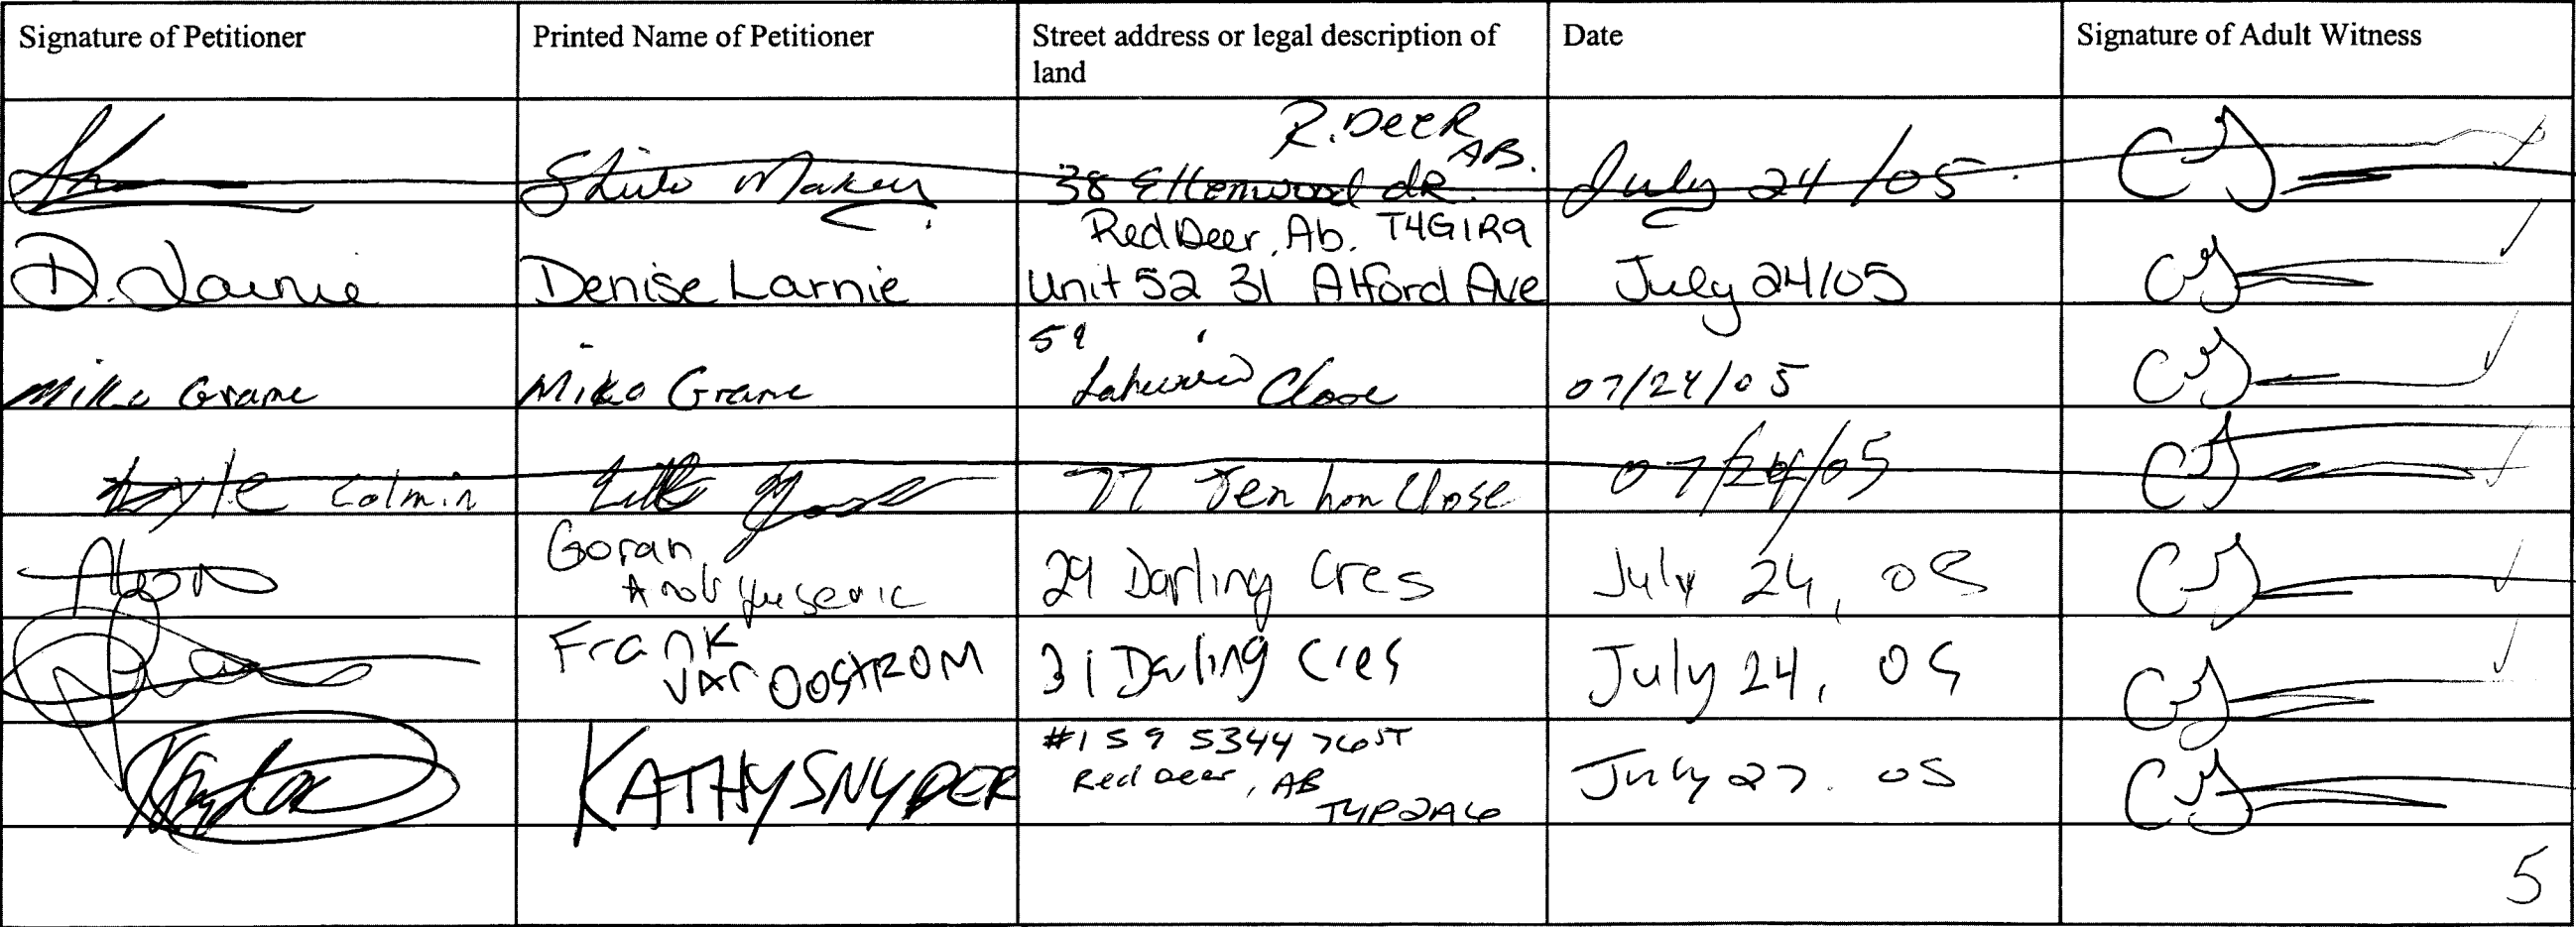 Signature of Petitioner
Printed Name of Petitioner
Street address or legal description of
land
Date
Signature of Adult Witness
R. Deer
AB.
38 Ellenwood dR.
July 24/05
CJ
D. Larnie
Denise Larnie
Red Deer, Ab. T4G1R9
Unit 52 31 Alford Ave
July 24/05
CJ
Mike Grame
Mike Grame
59
Lakeview Close
07/24/05
CJ
Lyle Colmin
77 Close
07/24/05
CJ
Goran
29 Darling Cres
July 24, 05
CJ
Frank
Van OOSTROM
31 Darling Cres
July 24, 05
CJ
KATHY SNYDER
#159 5344 76 ST
Red Deer, AB
T4P2A6
July 27. 05
CJ
5